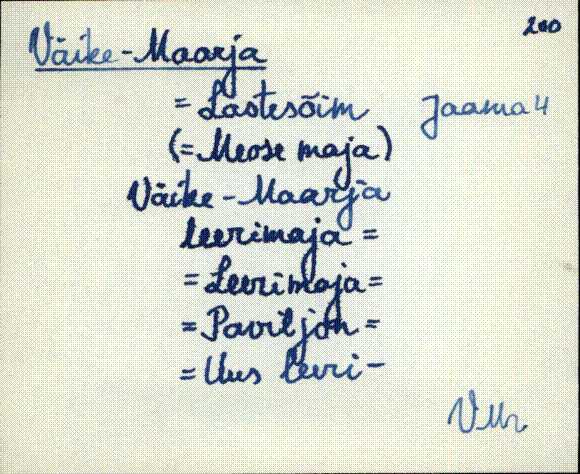 200
Väike-Maarja
= Lastesõim Jaama 4
(= Meose maja)
Väike-Maarja
leerimaja =
= Leerimaja =
= Paviljon =
= Uus leeri-
VMr